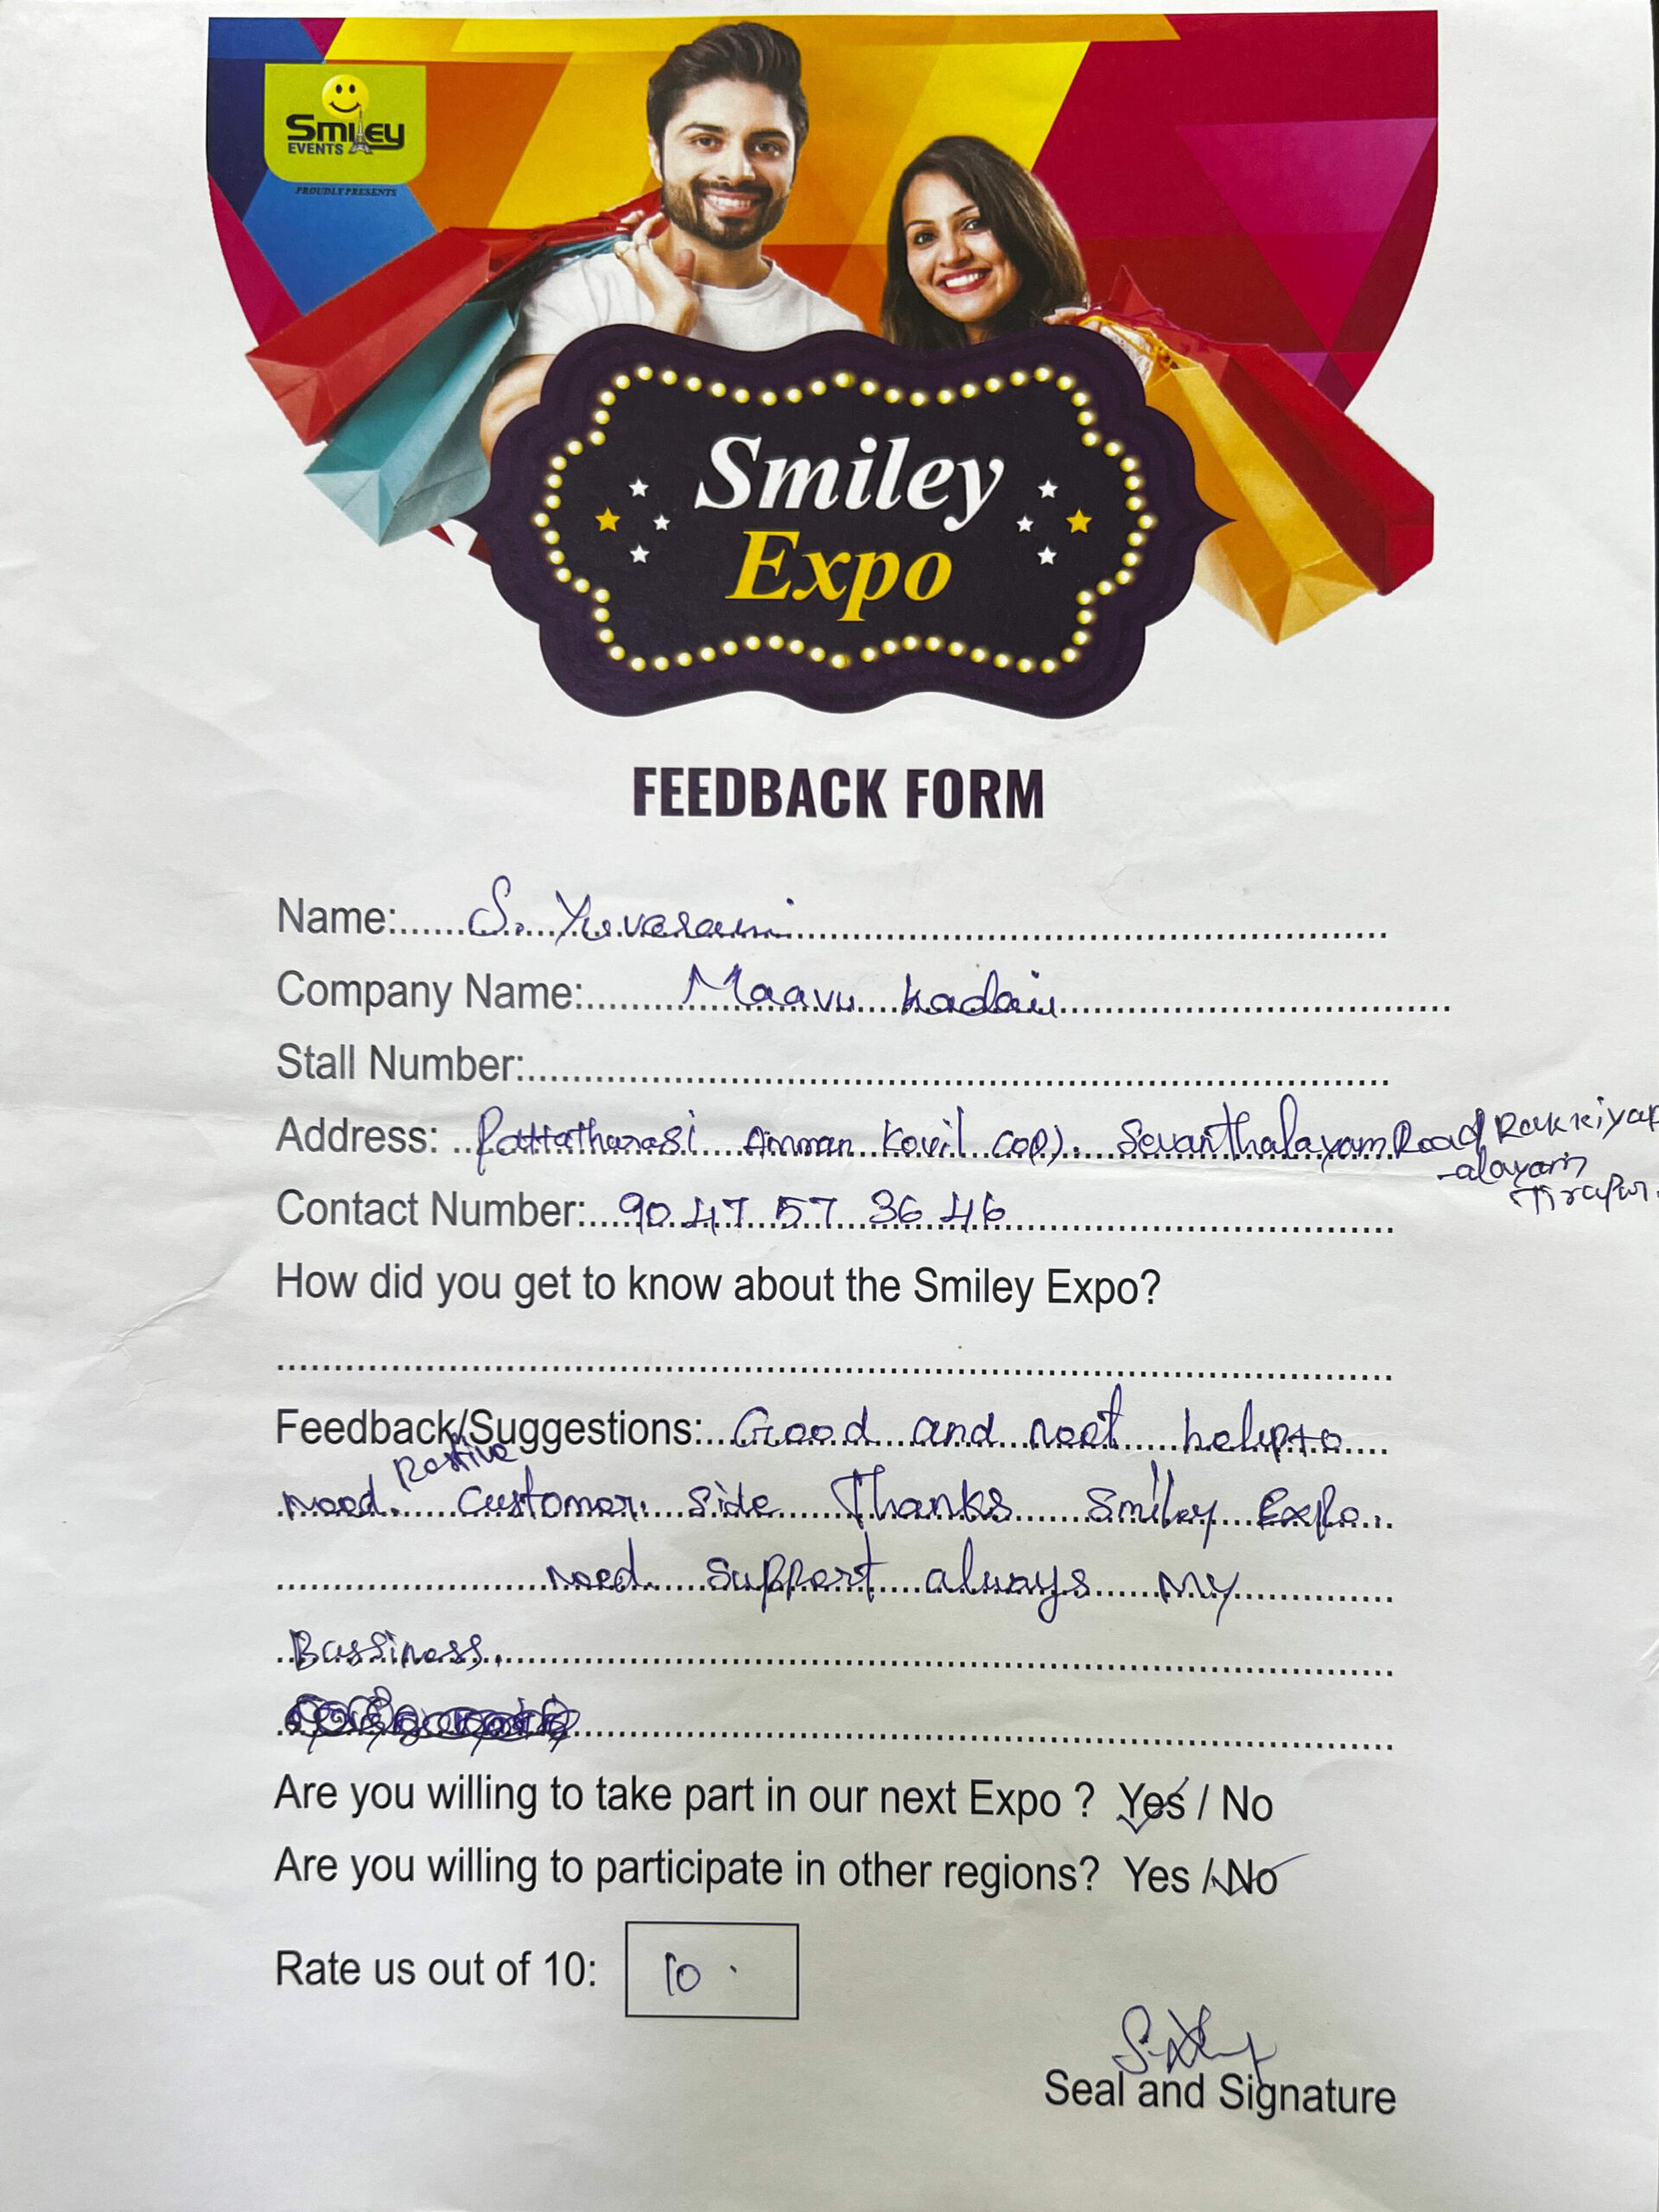 Smiley
EVENTS
PROUDLY PRESENTS
Smiley
Expo
FEEDBACK FORM
Name: S. Yuvarani
Company Name: Maavu kadai
Stall Number:
Address: Pattatharasi Amman Kovil (op). Sevanthalayam Road Rakkiyap
-alayam
Tirupur.
Contact Number: 90 47 57 36 46
How did you get to know about the Smiley Expo?
Feedback/Suggestions: Good and neet help to
need. Positive customer side Thanks Smiley Expo.
need support always my
Bussiness.
Are you willing to take part in our next Expo ? Yes / No
Are you willing to participate in other regions? Yes / No
Rate us out of 10: 10.
Seal and Signature